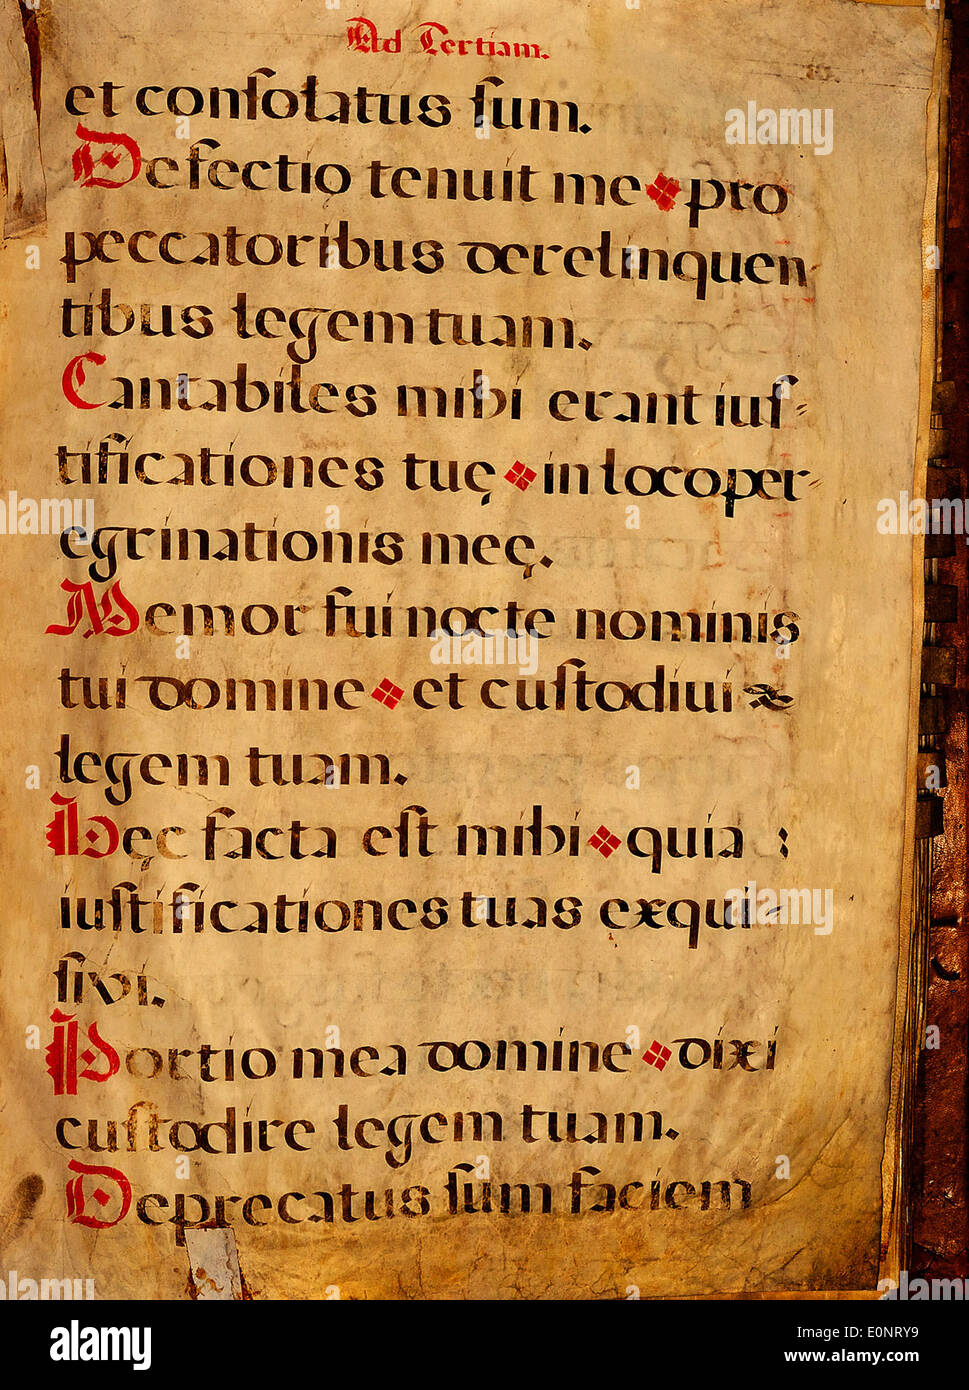 Ad Tertiam.
et conſolatus ſum.
Defectio tenuit me pro
peccatoribus derelinquen-
tibus legem tuam.
Cantabiles mihi erant iuſ-
tificationes tuę in loco per-
egrinationis meę.
Memor fui nocte nominis
tui domine et cuſtodiui
legem tuam.
Hęc facta eſt mihi quia
iuſtificationes tuas exqui-
ſivi.
Portio mea domine dixi
cuſtodire legem tuam.
Deprecatus ſum faciem
alamy
Image ID: E0NRY9
www.alamy.com